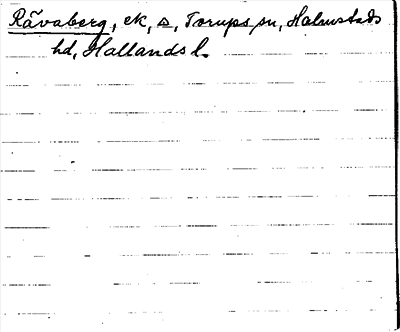 Råvaberg, ek, s, Torups sn, Halmstads
hd, Hallands l.